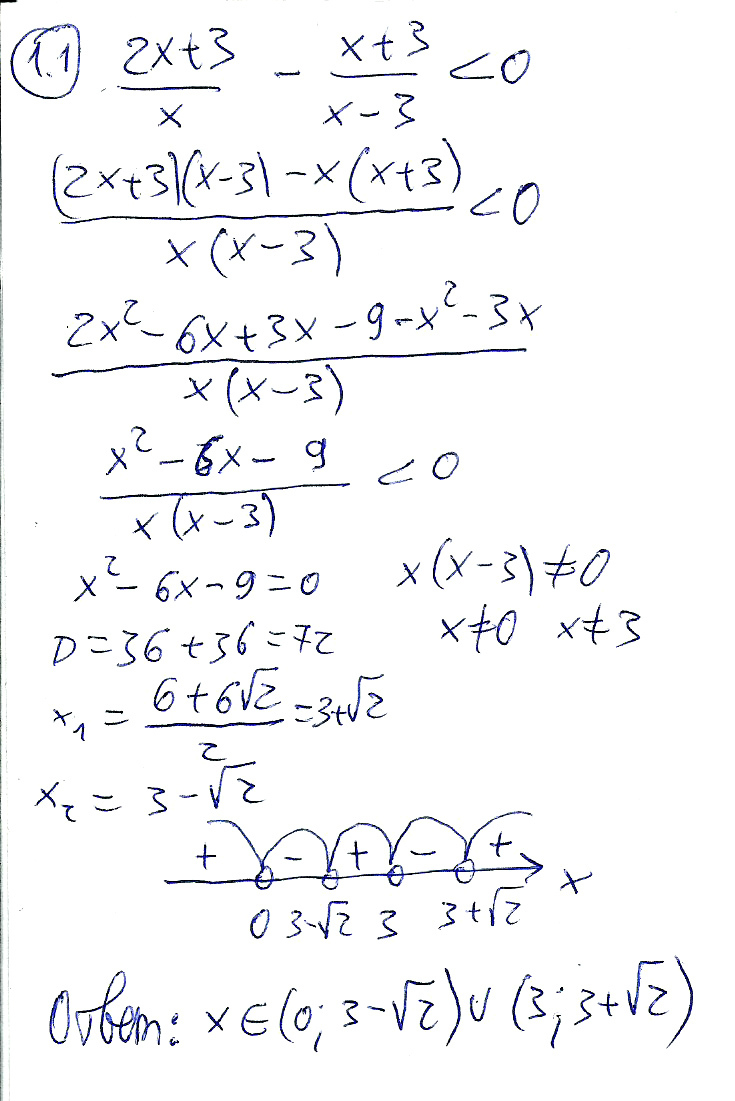 1.1 (2x+3)/x - (x+3)/(x-3) <0
((2x+3)(x-3)-x(x+3))/(x(x-3)) <0
(2x²-6x+3x-9-x²-3x)/(x(x-3))
(x²-6x-9)/(x(x-3)) <0
x²-6x-9=0 x(x-3)≠0
D=36+36=72 x≠0 x≠3
x₁ = (6+6√2)/2 =3+√2
x₂ = 3-√2
+ - + - +
x
0 3-√2 3 3+√2
Ответ: x∈(0; 3-√2)∪(3; 3+√2)